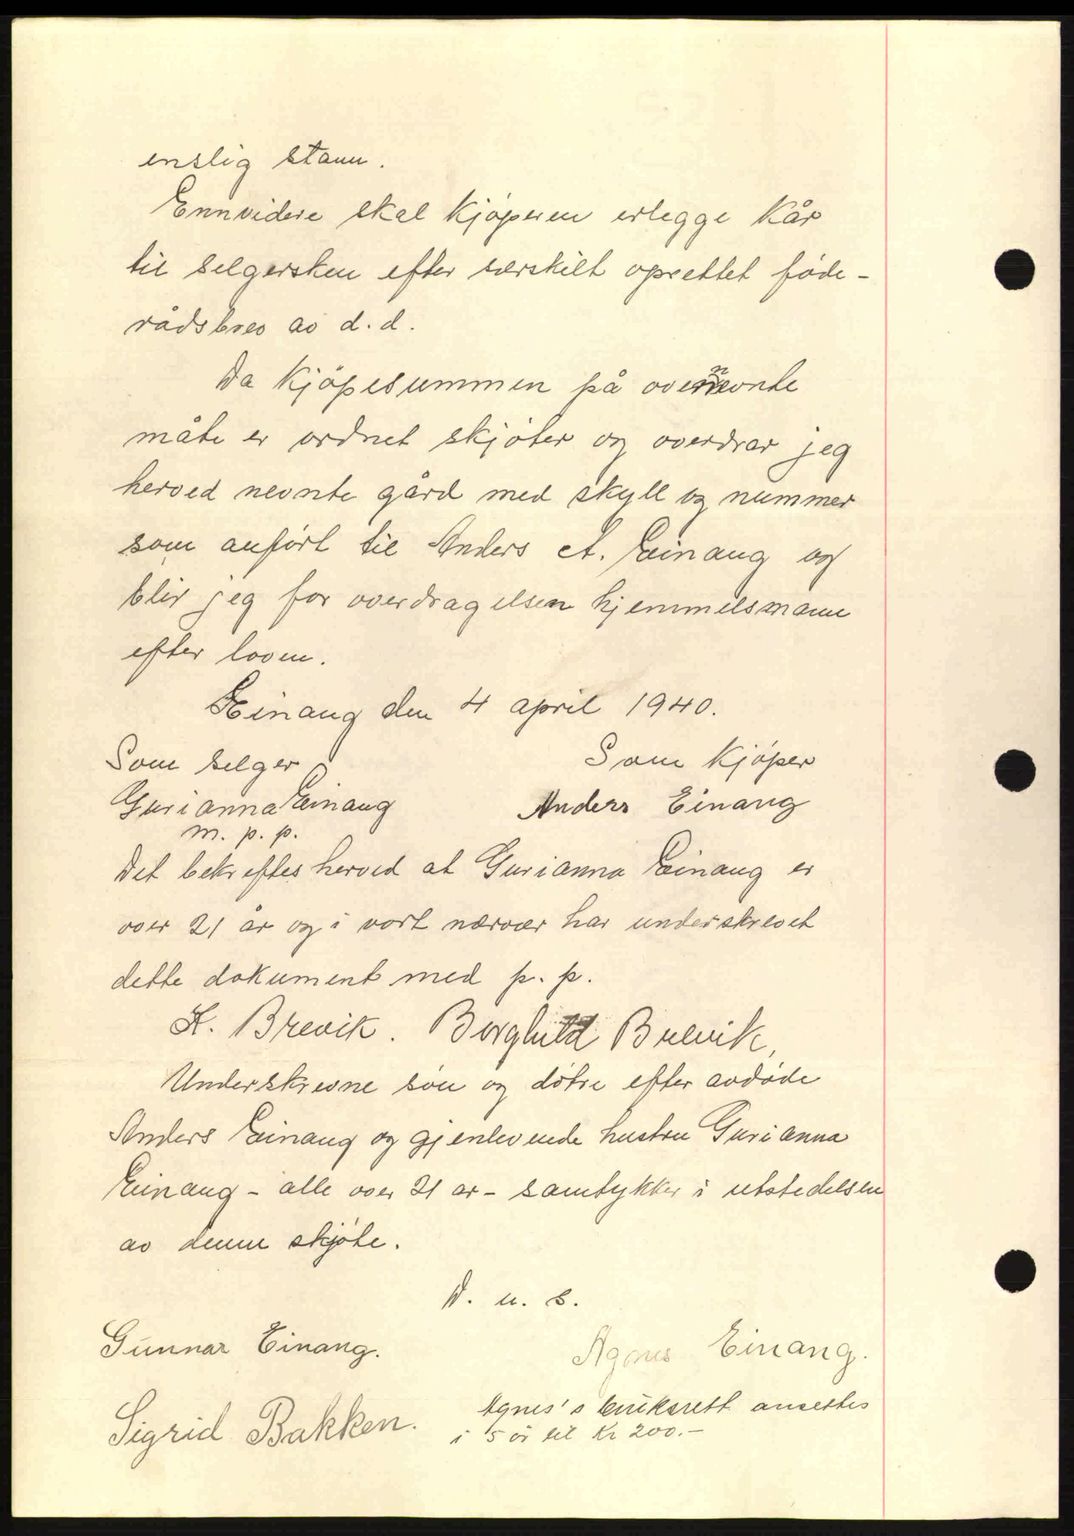 enslig stann.
Ennvidere skal kjöperen erlegge kår
til selgersken efter særskilt oprettet föde-
rådsbrev av d.d.
Da kjöpesummen på ovennevnte
måte er ordnet skjöter og overdrar jeg
herved nevnte gård med skyll og nummer
som anfört til Anders A. Einang og
blir jeg for overdragelsen hjemmelsmann
efter loven.
Einang den 4 april 1940.
Som selger Som kjöper
Gurianna Einang Anders Einang
m. p. p.
Det bekreftes herved at Gurianna Einang er
over 21 år og i vort nærvær har underskrevet
dette dokument med p. p.
K. Brevik. Borghild Brevik,
Underskrevne sön og dötre efter avdöde
Anders Einang og gjenlevende hustru Gurianna
Einang - alle over 21 ar - samtykker i utstedelsen
av denne skjöte.
D. u. s.
Gunnar Einang. Agnes Einang.
Sigrid Bakken. Agnes's bruksrett ansettes
i 5 år til Kr 200.-